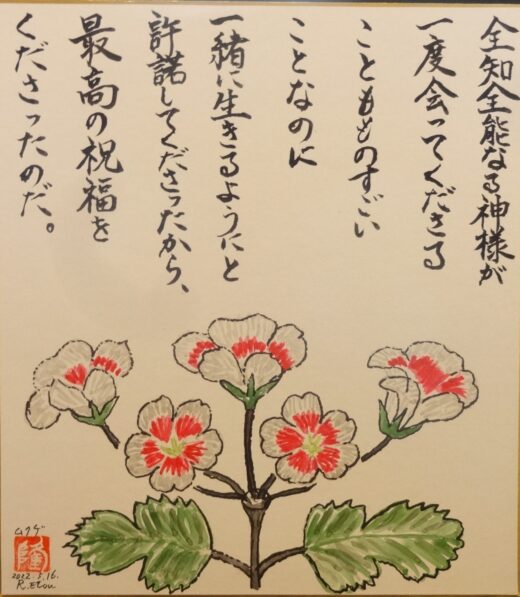 全知全能なる神様が
一度会ってくださる
こともものすごい
ことなのに
一緒に生きるようにと
許諾してくださったから、
最高の祝福を
くださったのだ。
ムクゲ
隆
2022.5.16.
R.Etou